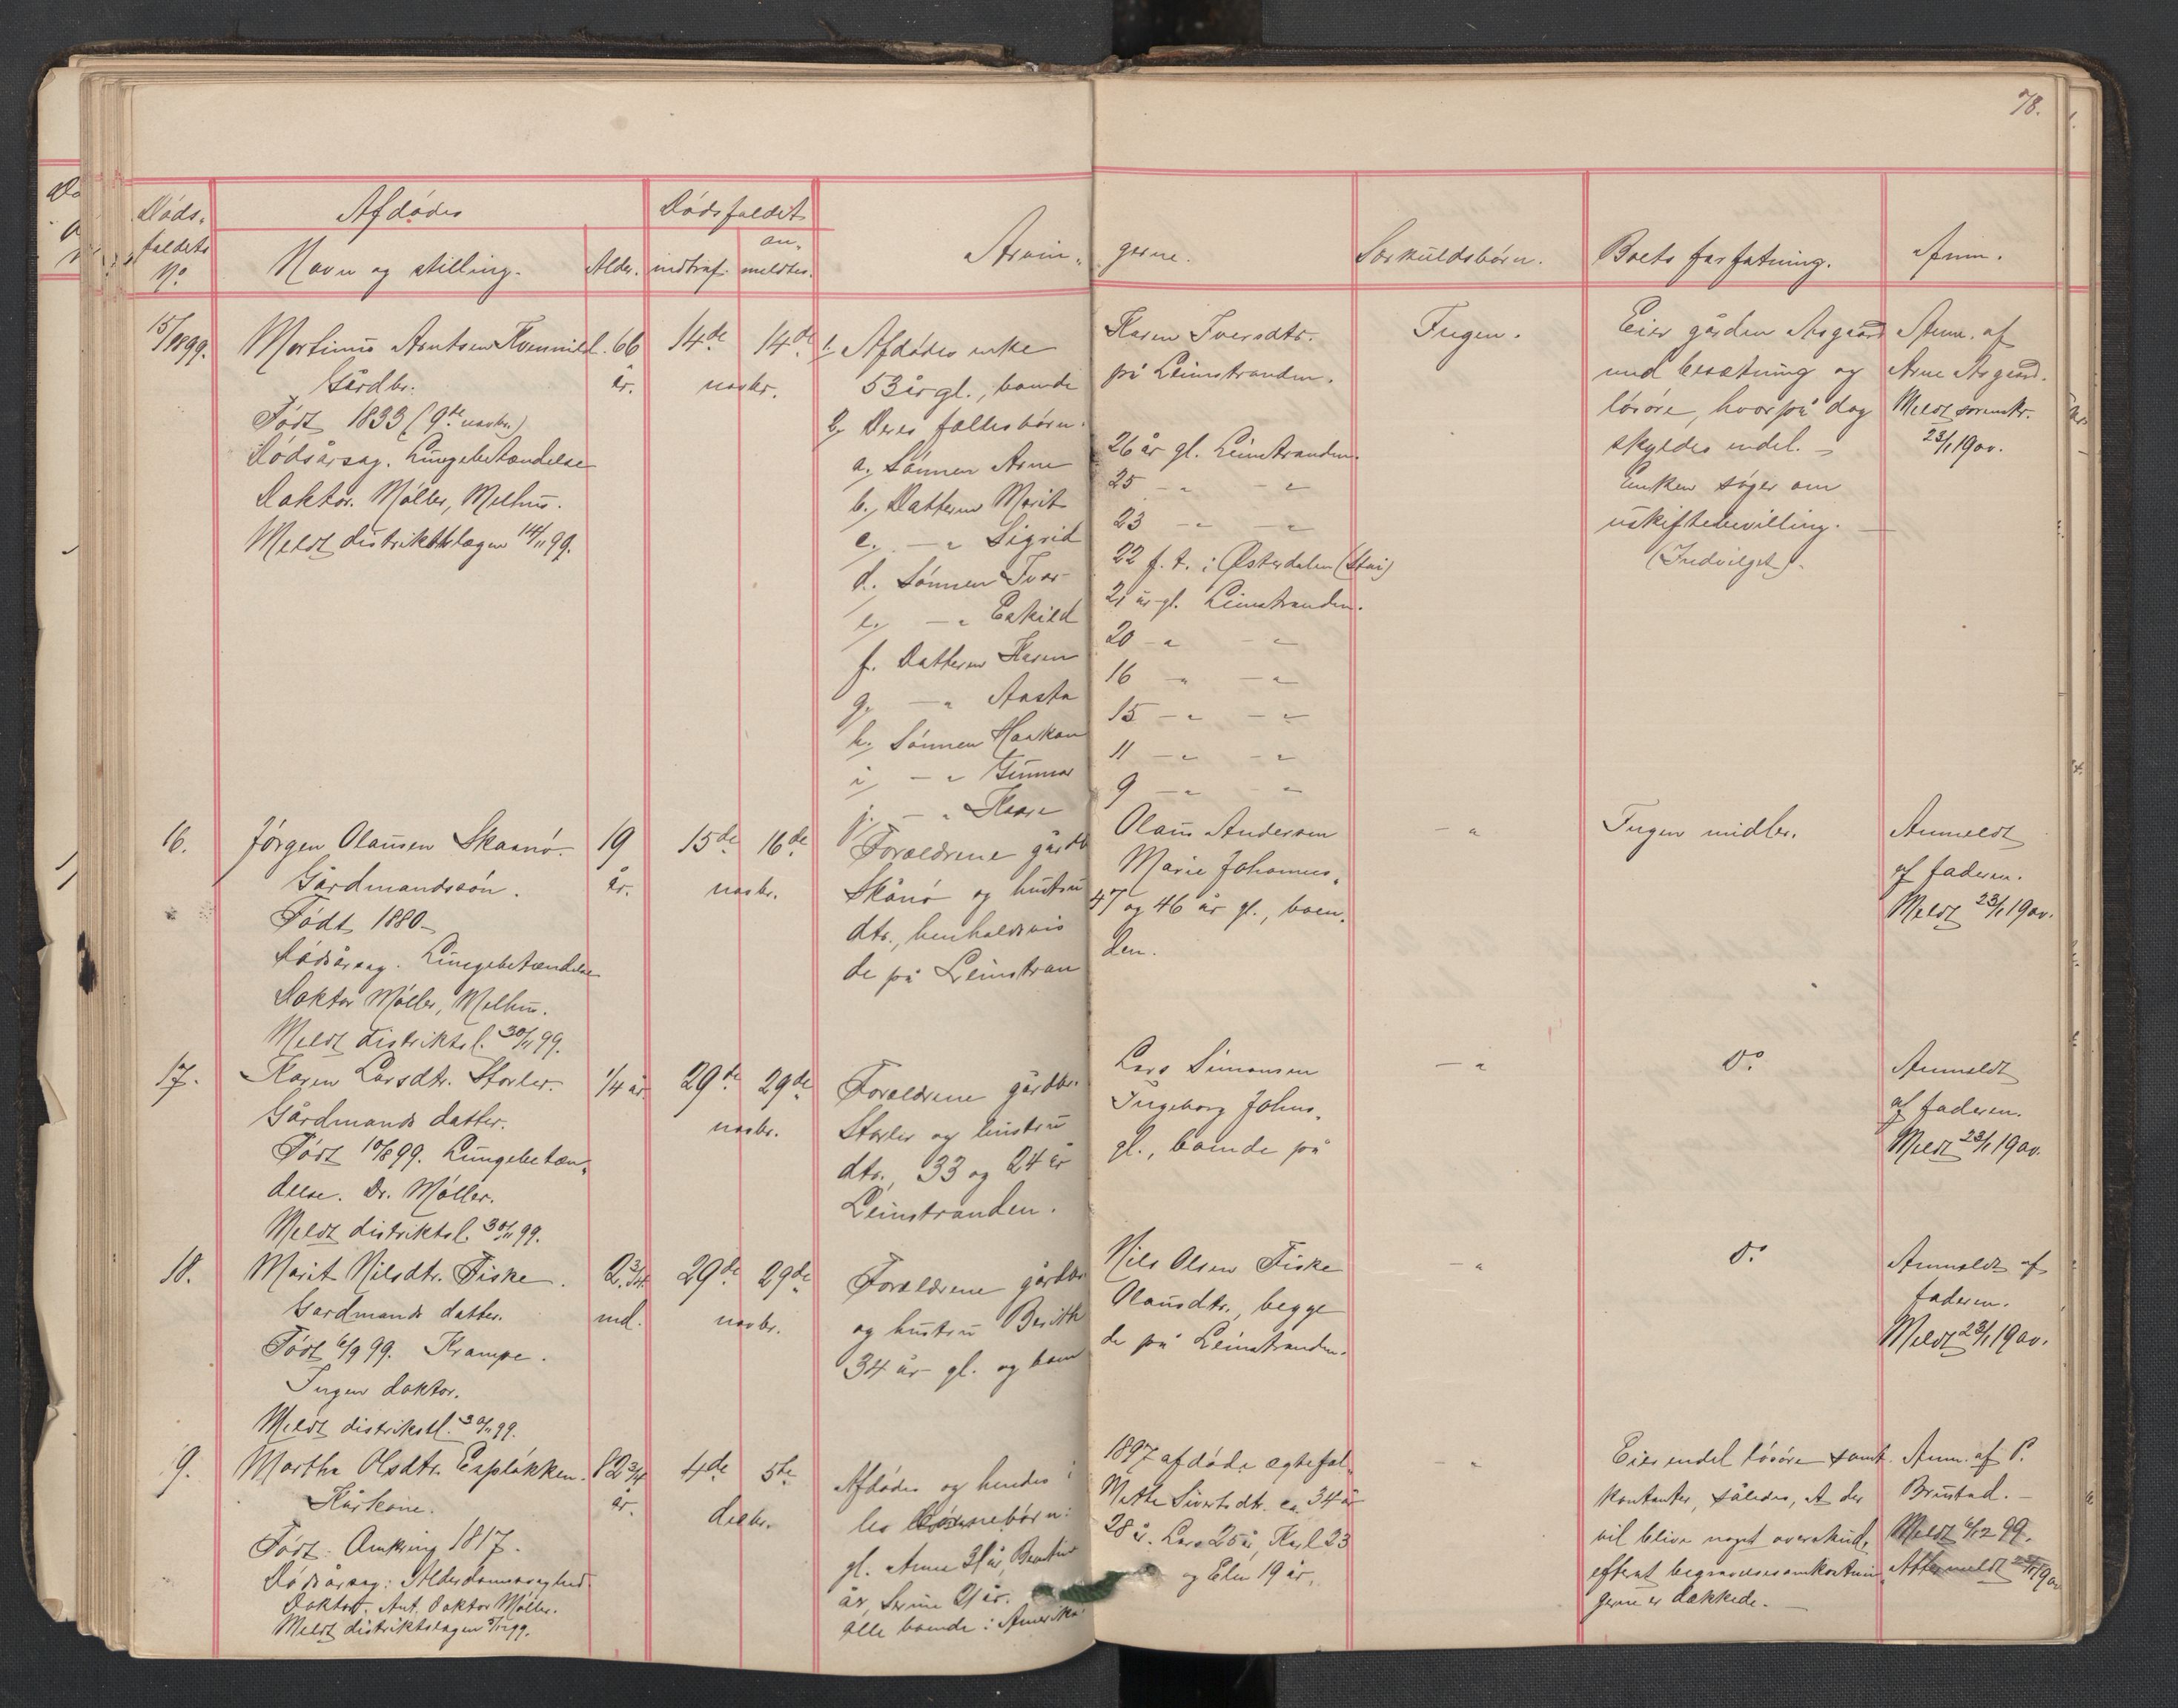 78.
Døds-
faldets
No.
Afdødes
Navn og stilling.
Alder.
Dødsfaldet
indtraf.
an-
meldtes.
Arvin-
gerne.
Særkuldsbørn.
Boets forfatning.
Anm.
15/1899.
Martinus Arntsen Kvenild.
Gårdbr.
Født 1833 (9de novbr.)
Dødsårsag. Lungebetændelse
Doktor. Møller, Melhus.
Meldt distriktslægen 14/11 99.
66
år.
14de
14de
novbr.
1. Afdødes enke Karen Iversdtr.
53 år gl., boende på Leinstranden.
2. Deres fællesbørn:
a. Sønnen Arne 26 år gl. Leinstranden.
b. Datteren Marit 25 -"- -"-
c. -"- Sigrid 23 -"- -"-
d. Sønnen Ivar 22 f. t. i Østerdalen (Stai)
e. -"- Eskild 21 år gl. Leinstranden.
f. Datteren Karen 20 -"- -"-
g. -"- Aasta 16 -"- -"-
h. Sønnen Haakon 15 -"- -"-
i. -"- Gunnar 11 -"- -"-
j. -"- Kaare 9 -"- -"-
Ingen.
Eier gården Asgaard
med besætning og
løsøre, hvorpå dog
skyldes endel. -
Enken søger om
uskiftebevilling. -
(Indvilget).
Anm. af
Arne Asgaard.
Meldt sorenskr.
23/1 1900.
16.
Jørgen Olausen Skaanø.
Gårdmandssøn.
Født 1880-
Dødsårsag. Lungebetændelse
Doktor Møller, Melhus.
Meldt distriktsl. 30/11 99.
19
år.
15de
16de
novbr.
Forældrene gårdb. Olaus Andersen
Skånø og hustru Marie Johannes-
dtr., henholdsvis 47 og 46 år gl., boen-
de på Leinstran den.
-"-
Ingen midler.
Anmeldt
af faderen.
Meldt 23/1 1900.
17.
Karen Larsdtr. Storler.
Gårdmands datter.
Født 10/8 99. Lungebetæn-
delse. Dr. Møller.
Meldt distriktsl. 30/11 99.
1/4 år.
29de
29de
novbr.
Forældrene gårdbr. Lars Simonsen
Storler og hustru Ingeborg Johns-
dtr., 33 og 24 år gl., boende på
Leinstranden.
-"-
Do
Anmeldt
af faderen.
Meldt 23/1 1900.
18.
Marit Nilsdtr. Fiske.
Gardmands datter.
Født 6/9 99. Krampe.
Ingen doktor.
Meldt distriktsl. 30/11 99.
2 3/4
md.
29de
29de
novbr.
Forældrene gårdbr. Nils Olsen Fiske
og hustru Berith Olausdtr., begge
34 år gl. og boen de på Leinstranden.
-"-
Do
Anmeldt af
faderen.
Meldt 23/1 1900.
9.
Martha Olsdtr. Espløkken.
Kårkone.
Født. Omkring 1817.
Dødsårsag: Alderdomssvaghed.
Doktor. Ant. Doktor Møller.
Meldt distriktslægen 5/12 99.
82 3/4
år.
4de
5te
decbr.
Afdødes og hendes i 1897 afdøde ægtefæl-
les børnebørn: Mette Sivertsdtr. ca. 34 år
gl. Anne 31 år, 28 år. Lars 25 år, Karl 23
år, 21 år. og Elen 19 år.
alle boende i Amerika.
-"-
Eier endel løsøre samt
kontanter, således, at der
vil blive noget overskud,
efterat begravelsesomkostnin-
gerne er dækkede. -
Anm. af P.
Brustad. -
Meldt 6/12 99.